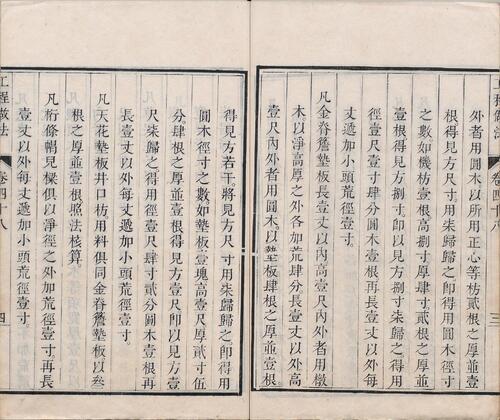 工程做法 卷四十八 三
外者用圓木以所用正心等枋貳根之厚並壹
根得見方尺寸用柒歸歸之即得用圓木徑寸
之數如機枋壹根高捌寸厚肆寸貳根之厚並
壹根得見方捌寸即以見方捌寸柒歸之得用
徑壹尺壹寸肆分圓木壹根再長壹丈以外每
丈遞加小頭荒徑壹寸。
凡金脊簷墊板長壹丈以內高壹尺內外者用橔
木以淨高厚之外各加荒肆分長壹丈以外高
壹尺內外者用圓木。以墊板肆根之厚並壹根。
得見方若干。將見方尺寸用柒歸歸之即得用
圓木徑寸之數如墊板壹塊高壹尺厚貳寸伍
分。肆根之厚並壹根得見方壹尺即以見方壹
尺柒歸之得用徑壹尺肆寸貳分圓木壹根再
長壹丈以外每丈遞加小頭荒徑壹寸。
凡天花墊板井口枋用料俱同金脊簷墊板以叁
根之厚並壹根照法核算
凡桁條鵰兒樑俱以淨徑之外加荒徑壹寸再長
壹丈以外每丈遞加小頭荒徑壹寸。
工程做法 卷四十八 四